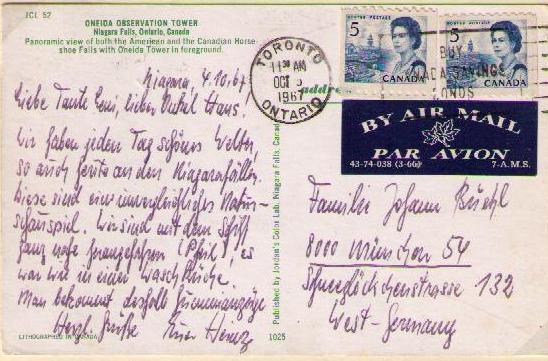 JCL 52
ONEIDA OBSERVATION TOWER
Niagara Falls, Ontario, Canada
Panoramic view of both the American and the Canadian Horse-
shoe Falls with Oneida Tower in foreground.
Niagara, 4.10.67
Liebe Tante Leni, lieber Onkel Hans!
Wir haben jeden Tag schönes Wetter,
so auch heute an den Niagarafällen.
Diese sind ein unvergleichliches Natur-
schauspiel. Wir sind mit dem Schiff
ganz nahe herangefahren (Phil), es
war wie in einer Waschküche.
Man bekommt deshalb Gummianzüge
Herzl. Grüße Heinz
LITHOGRAPHED IN CANADA
1025
Published by Jordan's Color Lab, Niagara Falls, Canada
TORONTO
11 30 AM
OCT 5
1967
ONTARIO
addre
POSTES POSTAGE
5
CANADA
POSTES POSTAGE
5
CANADA
BUY
CANADA SAVINGS
BONDS
BY AIR MAIL
PAR AVION
43-74-038 (3-66)
7-A.M.S.
Familie Johann Büehl
8000 München 54
Schneeglöckchenstrasse 132
West-Germany